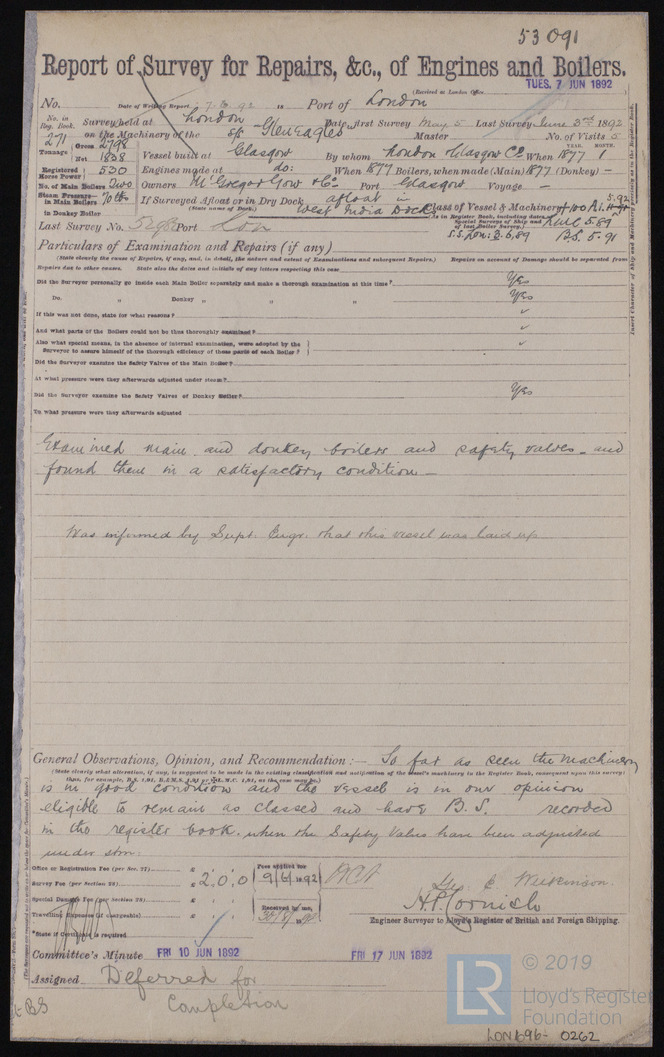 53091
Report of Survey for Repairs, &c., of Engines and Boilers.
(Received at London Office
TUES. 7 JUN 1892
No. Date of Writing Report 7.6.92 18 Port of London
No. in Reg. Book. 271 Survey held at London Date, first Survey May 5 Last Survey June 3rd 1892
on the Machinery of the s/s Gleneagles Master No. of Visits 5
Tonnage Gross 2798 Net 1838
Vessel built at Glasgow By whom London & Glasgow Co. When 1877 YEAR. MONTH. 1
Registered Horse Power 530 Engines made at do: When 1877 Boilers, when made (Main) 1877 (Donkey) —
No. of Main Boilers Two Owners McGregor Gow & Co. Port Glasgow Voyage —
Steam Pressure— in Main Boilers 70 lbs If Surveyed Afloat or in Dry Dock afloat in
(State name of Dock.) West India Dock
in Donkey Boiler
Class of Vessel & Machinery 100 A1. 5.92
(as in Register Book, including dates of Special Surveys of Ship and of last Boiler Survey.) 5.89
S.S. Lon: 2.5,89 B.S. 5.91
Last Survey No. Port Lon
Insert Character of Ship and Machinery precisely as in the Register Book.
Particulars of Examination and Repairs (if any)
(State clearly the cause of Repairs, if any, and, in detail, the nature and extent of Examinations and subsequent Repairs.) Repairs on account of Damage should be separated from
Repairs due to other causes. State also the dates and initials of any letters respecting this case
Did the Surveyor personally go inside each Main Boiler separately and make a thorough examination at this time? Yes
Do. „ Donkey „ „ „ Yes
If this was not done, state for what reasons? ✓
And what parts of the Boilers could not be thus thoroughly examined? ✓
Also what special means, in the absence of internal examination, were adopted by the Surveyor to assure himself of the thorough efficiency of those parts of each Boiler? ✓
Did the Surveyor examine the Safety Valves of the Main Boiler?
At what pressure were they afterwards adjusted under steam?
Did the Surveyor examine the Safety Valves of Donkey Boiler? Yes
To what pressure were they afterwards adjusted
Examined main and donkey boilers and safety valves and
found them in a satisfactory condition —
Was informed by Supt. Engr. that this vessel was laid up
General Observations, Opinion, and Recommendation :— So far as seen the machinery
(State clearly what alteration, if any, is suggested to be made in the existing classification and notification of the vessel's machinery in the Register Book, consequent upon this survey)
is in good condition and the vessel is in our opinion
eligible to remain as classed and have B.S. recorded
in the register book. when the Safety Valves have been adjusted
under stm.
Office or Registration Fee (per Sec. 27) £
Survey Fee (per Section 28) £ 2.0.0
Special Damage Fee (per Section 28) £
Travelling Expenses (if chargeable) £
Fees applied for 9/6/1892
Received by me,
Geo. E. Wilkinson.
H.P. Cornish
Engineer Surveyor to Lloyd's Register of British and Foreign Shipping.
*State if Certificate required
Committee's Minute FRI 10 JUN 1892 FRI 17 JUN 1892
Assigned Deferred for
Completion
BS
© 2019
LR
Lloyd's Register
Foundation
LON 696- 0262